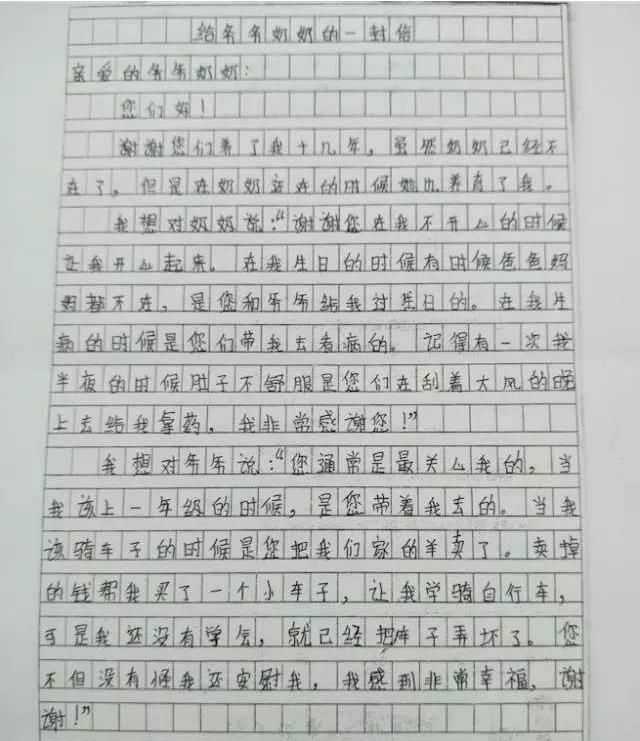 给爷爷奶奶的一封信
亲爱的爷爷奶奶：
您们好！
谢谢您们养了我十几年，虽然奶奶已经不
在了。但是在奶奶还在的时候她也养育了我。
我想对奶奶说：“谢谢您在我不开心的时候
让我开心起来。在我生日的时候有时候爸爸妈
妈都不在，是您和爷爷给我过生日的。在我生
病的时候是您们带我去看病的。记得有一次我
半夜的时候肚子不舒服是您们在刮着大风的晚
上去给我拿药。我非常感谢您！”
我想对爷爷说：“您通常是最关心我的，当
我该上一年级的时候，是您带着我去的。当我
该骑车子的时候是您把我们家的羊卖了。卖掉
的钱帮我买了一个小车子，让我学骑自行车，
可是我还没有学会，就已经把车子弄坏了。您
不但没有怪我还安慰我，我感到非常幸福，谢
谢！”